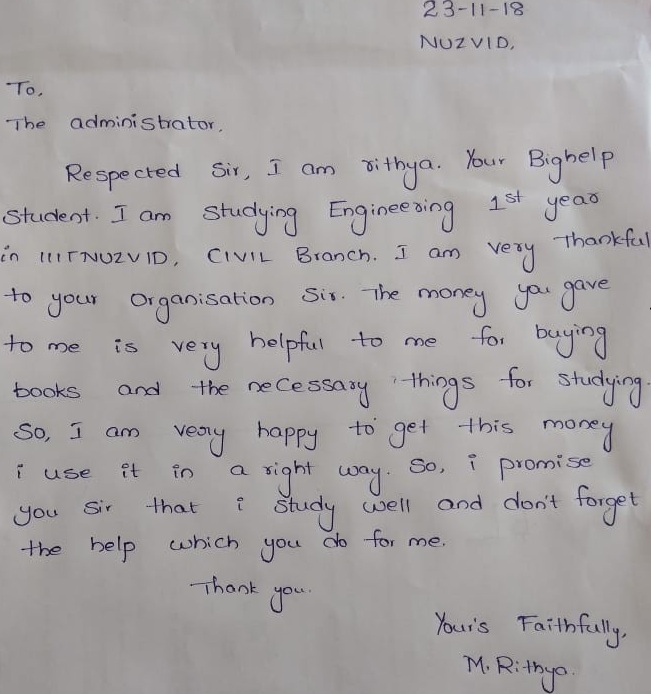 23-11-18
NUZVID,
To,
The administrator,
Respected Sir, I am rithya. Your Bighelp
Student. I am studying Engineering 1st year
in IIITNUZVID, CIVIL Branch. I am very Thankful
to your Organisation Sir. The money you gave
to me is very helpful to me for buying
books and the necessary things for studying.
So, I am very happy to get this money
i use it in a right way. So, i promise
you Sir that i study well and don't forget
the help which you do for me.
Thank you.
Your's Faithfully,
M. Rithya.